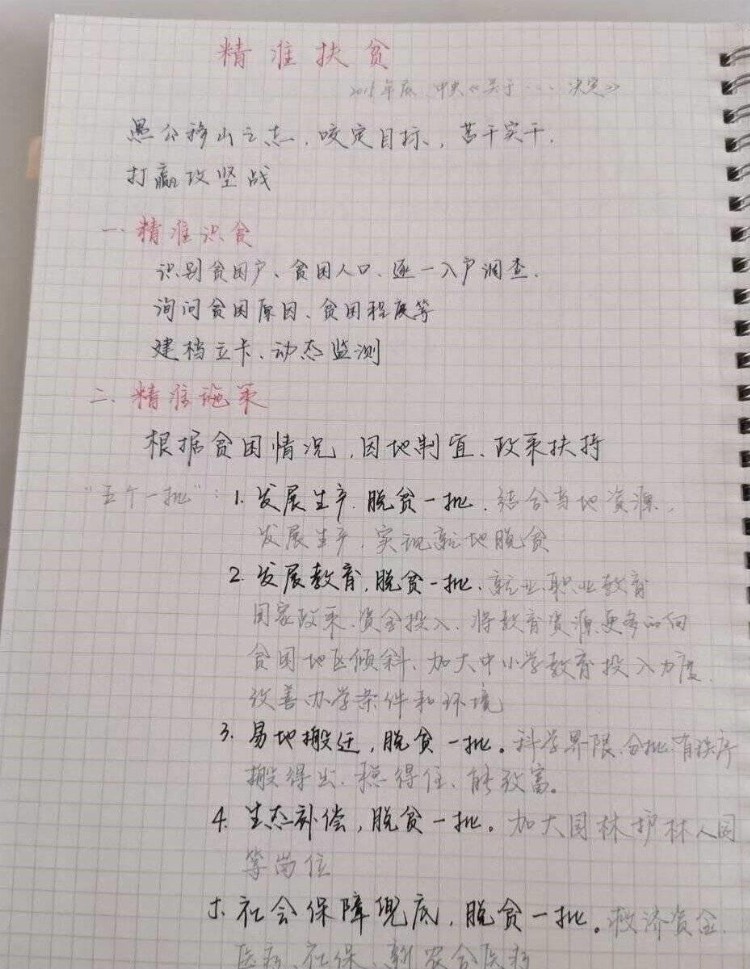 精准扶贫
2015年底,中央《关于……决定》
愚公移山之志,咬定目标,苦干实干,
打赢攻坚战
一、精准识贫
识别贫困户、贫困人口、逐一入户调查.
询问贫困原因、贫困程度等
建档立卡、动态监测
二、精准施策
根据贫困情况,因地制宜、政策扶持
“五个一批”:1.发展生产,脱贫一批.结合当地资源,
发展生产,实现就地脱贫
2.发展教育,脱贫一批.就业、职业教育
国家政策、资金投入、将教育资源更多的向
贫困地区倾斜、加大中小学教育投入力度,
改善办学条件和环境
3.易地搬迁,脱贫一批。科学界限、分批、有秩序
搬得出、稳得住、能致富。
4.生态补偿,脱贫一批。加大园林护林人员
等岗位
5.社会保障兜底,脱贫一批。救济资金,
医疗、社保、新农合医疗